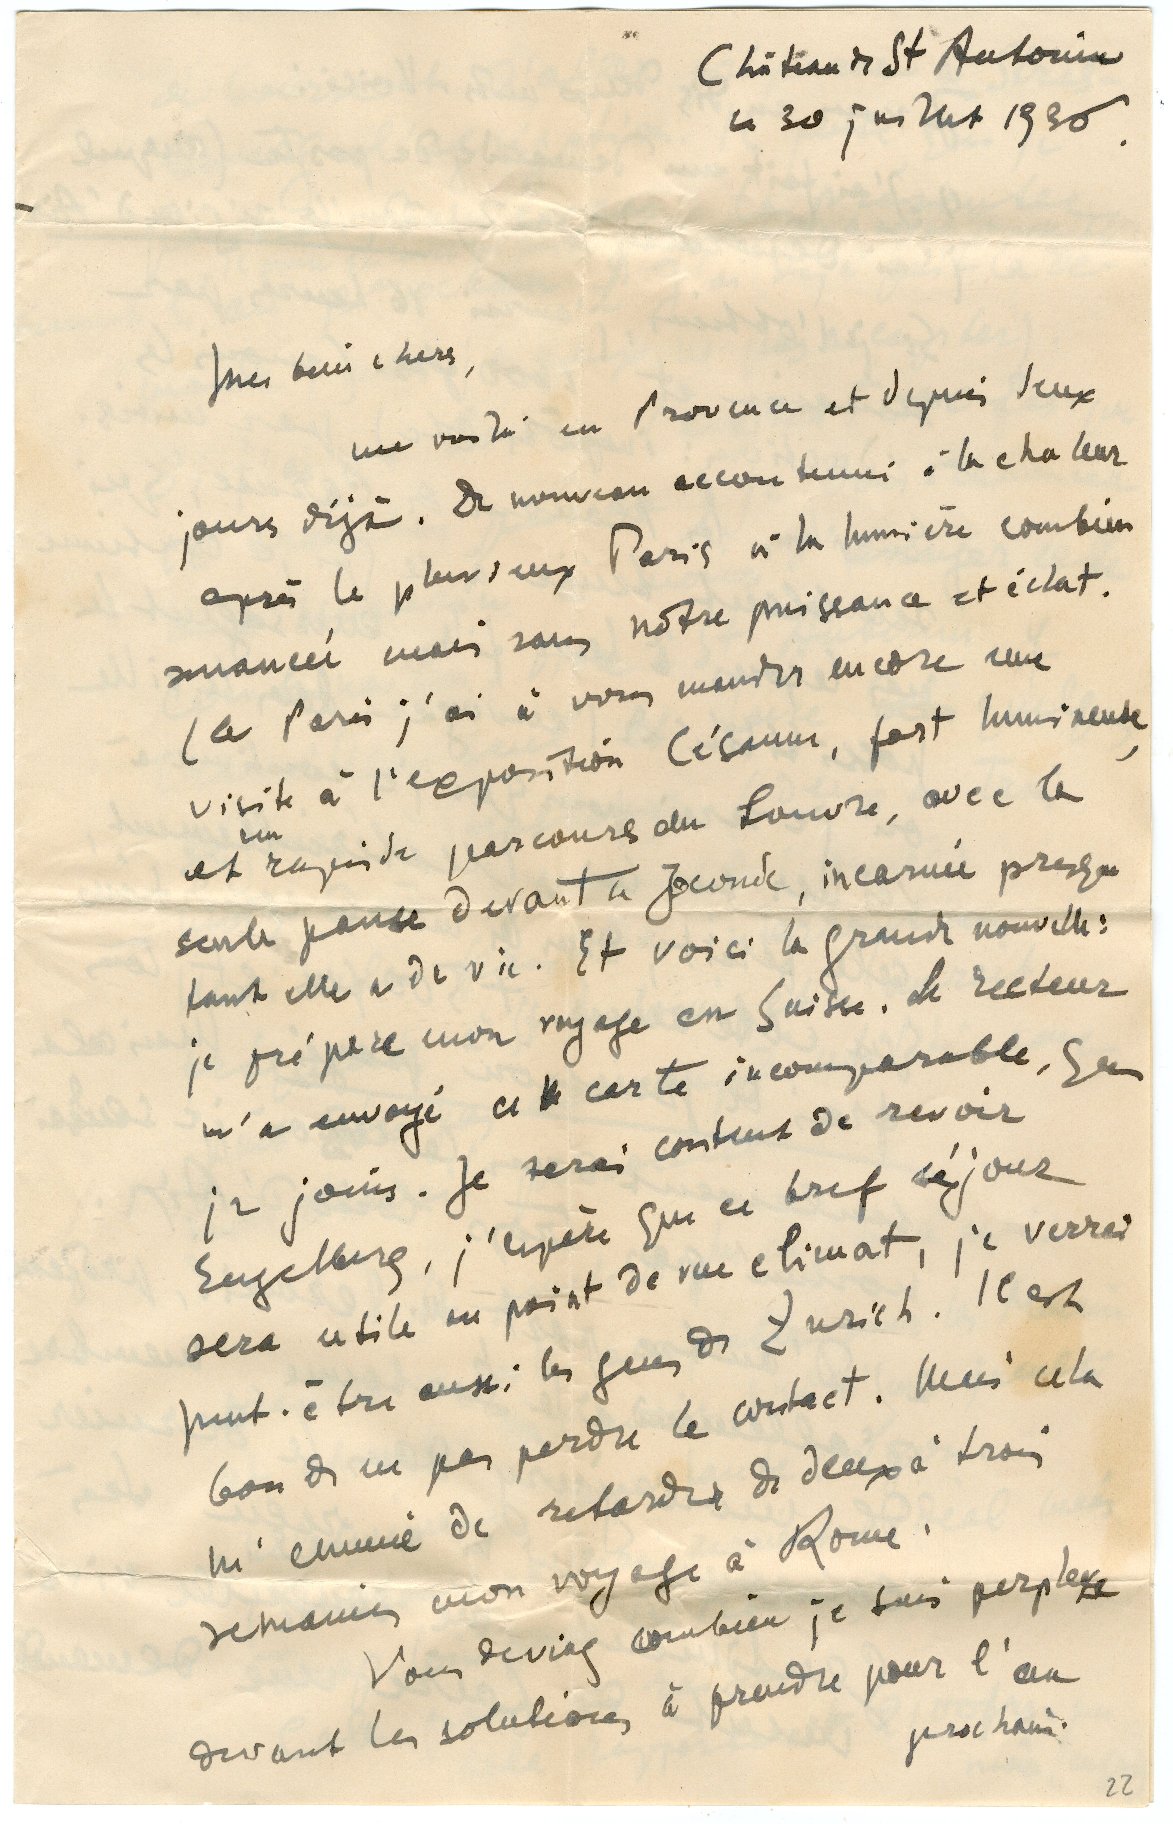 Château de St Antonin
le 30 juillet 1936.
Mes bien chers,
me voilà en Provence et depuis deux
jours déjà. De nouveau accoutumé à la chaleur
après le pluvieux Paris à la lumière combien
nuancée mais sans nôtre puissance et éclat.
(De Paris j'ai à vous mander encore une
visite à l'exposition Césanne, fort lumineuse,
et un rapide parcours du Louvre, avec la
seule pause devant la Joconde, incarnée presque
tant elle a de vie. Et voici la grande nouvelle:
je prépare mon voyage en Suisse. Le recteur
m'a envoyé cette carte incomparable, que
je joins. Je serai content de revoir
Engelberg, j'espère que ce bref séjour
sera utile au point de vue climat, je verrai
peut-être aussi les gens de Zurich. Il est
bon de ne pas perdre le contact. Mais cela
m'ennuie de retarder de deux à trois
semaines mon voyage à Rome.
Vous devinez combien je suis perplexe
devant les solutions à prendre pour l'an
prochain.
22